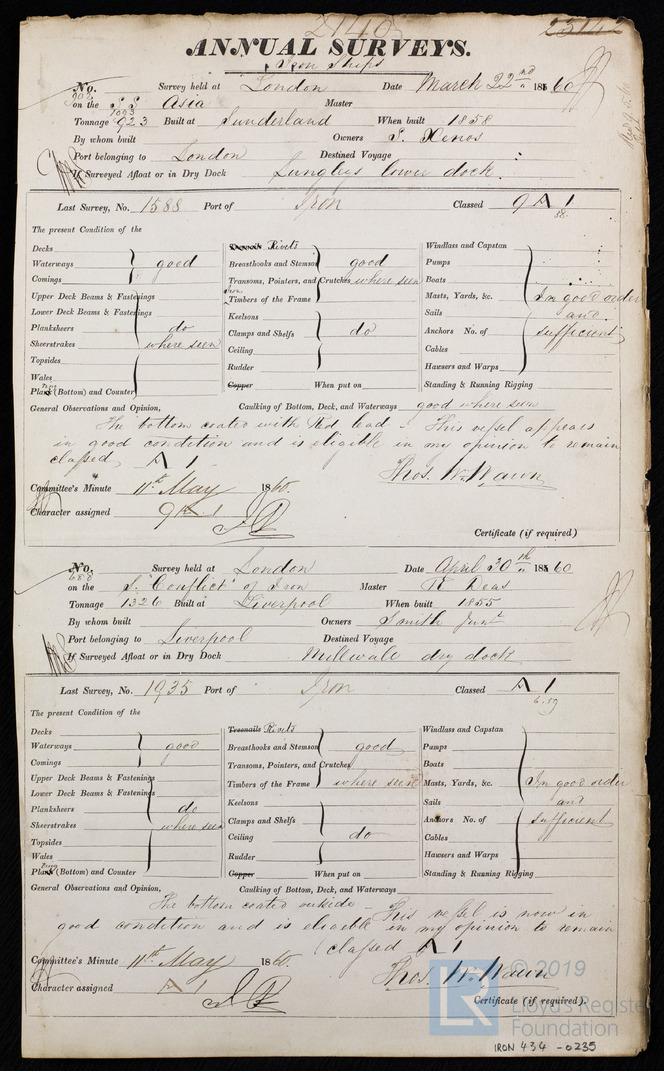 2140
ANNUAL SURVEYS.
Iron Ships
No. Survey held at London Date March 22nd 1860
on the S S Asia Master
1003
Tonnage 923 Built at Sunderland When built 1858
By whom built Owners S. Xenos
Port belonging to London Destined Voyage
If Surveyed Afloat or in Dry Dock Lungleys lower dock.
Last Survey, No. 1588 Port of Iron Classed 9 A 1
58
The present Condition of the
Decks
Waterways good
Comings
Upper Deck Beams & Fastenings
Lower Deck Beams & Fastenings
Planksheers do
Sheerstrakes where seen
Topsides
Wales
Plank (Bottom) and Counter
Treenails Rivets
Breasthooks and Stemson good
Transoms, Pointers, and Crutches where seen
Iron
Timbers of the Frame
Keelsons
Clamps and Shelfs do
Ceiling
Rudder
Copper When put on
Windlass and Capstan
Pumps
Boats
Masts, Yards, &c. In good order
Sails and
Anchors No. of sufficient
Cables
Hawsers and Warps
Standing & Running Rigging
General Observations and Opinion, Caulking of Bottom, Deck, and Waterways good where seen
The bottom coated with Red lead - This vessel appears
in good condition and is eligible in my opinion to remain
classed A 1
Thos. W. Wawn
Committee's Minute 11th May 1860.
Character assigned 9 A 1
Certificate (if required)
No. Survey held at London Date April 30th 1860
680
on the S. "Conflict" of Iron Master R Deas
Tonnage 1326 Built at Liverpool When built 1855
By whom built Owners Smith Junr
Port belonging to Liverpool Destined Voyage
If Surveyed Afloat or in Dry Dock Millwale dry dock
Last Survey, No. 1935 Port of Iron Classed A 1
6.59
The present Condition of the
Decks
Waterways good
Comings
Upper Deck Beams & Fastenings
Lower Deck Beams & Fastenings
Planksheers do
Sheerstrakes where seen
Topsides
Wales
Plank (Bottom) and Counter
Treenails Rivets
Breasthooks and Stemson good
Transoms, Pointers, and Crutches
Timbers of the Frame where seen
Keelsons
Clamps and Shelfs
Ceiling do
Rudder
Copper When put on
Windlass and Capstan
Pumps
Boats
Masts, Yards, &c. In good order
Sails and
Anchors No. of sufficient
Cables
Hawsers and Warps
Standing & Running Rigging
General Observations and Opinion, Caulking of Bottom, Deck, and Waterways
The bottom coated outside - This vessel is now in
good condition and is eligible in my opinion to remain
classed A 1
Committee's Minute 11th May 1860.
Thos. W. Wawn
Character assigned A 1
Certificate (if required).
© 2019
LR Lloyd's Register
Foundation
IRON 434 -0235